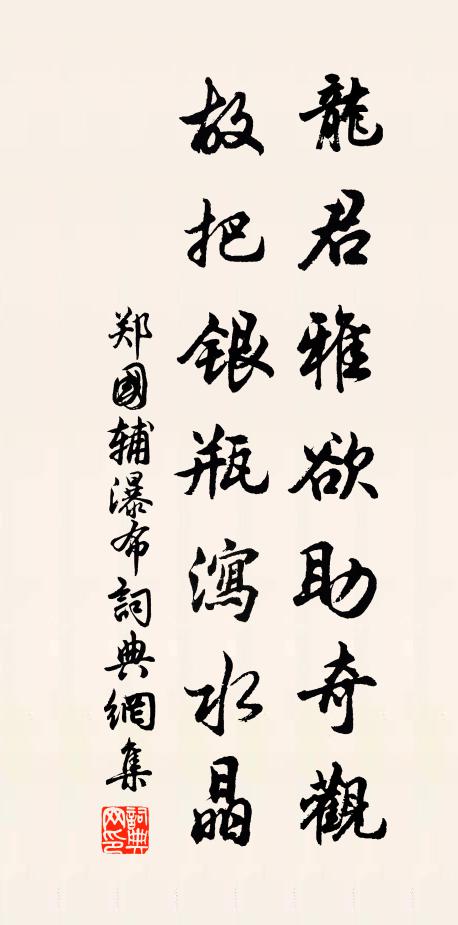 龍君雅欲助奇觀
故把銀瓶瀉水晶
郑國辅瀑布詞典網集
詞典网印